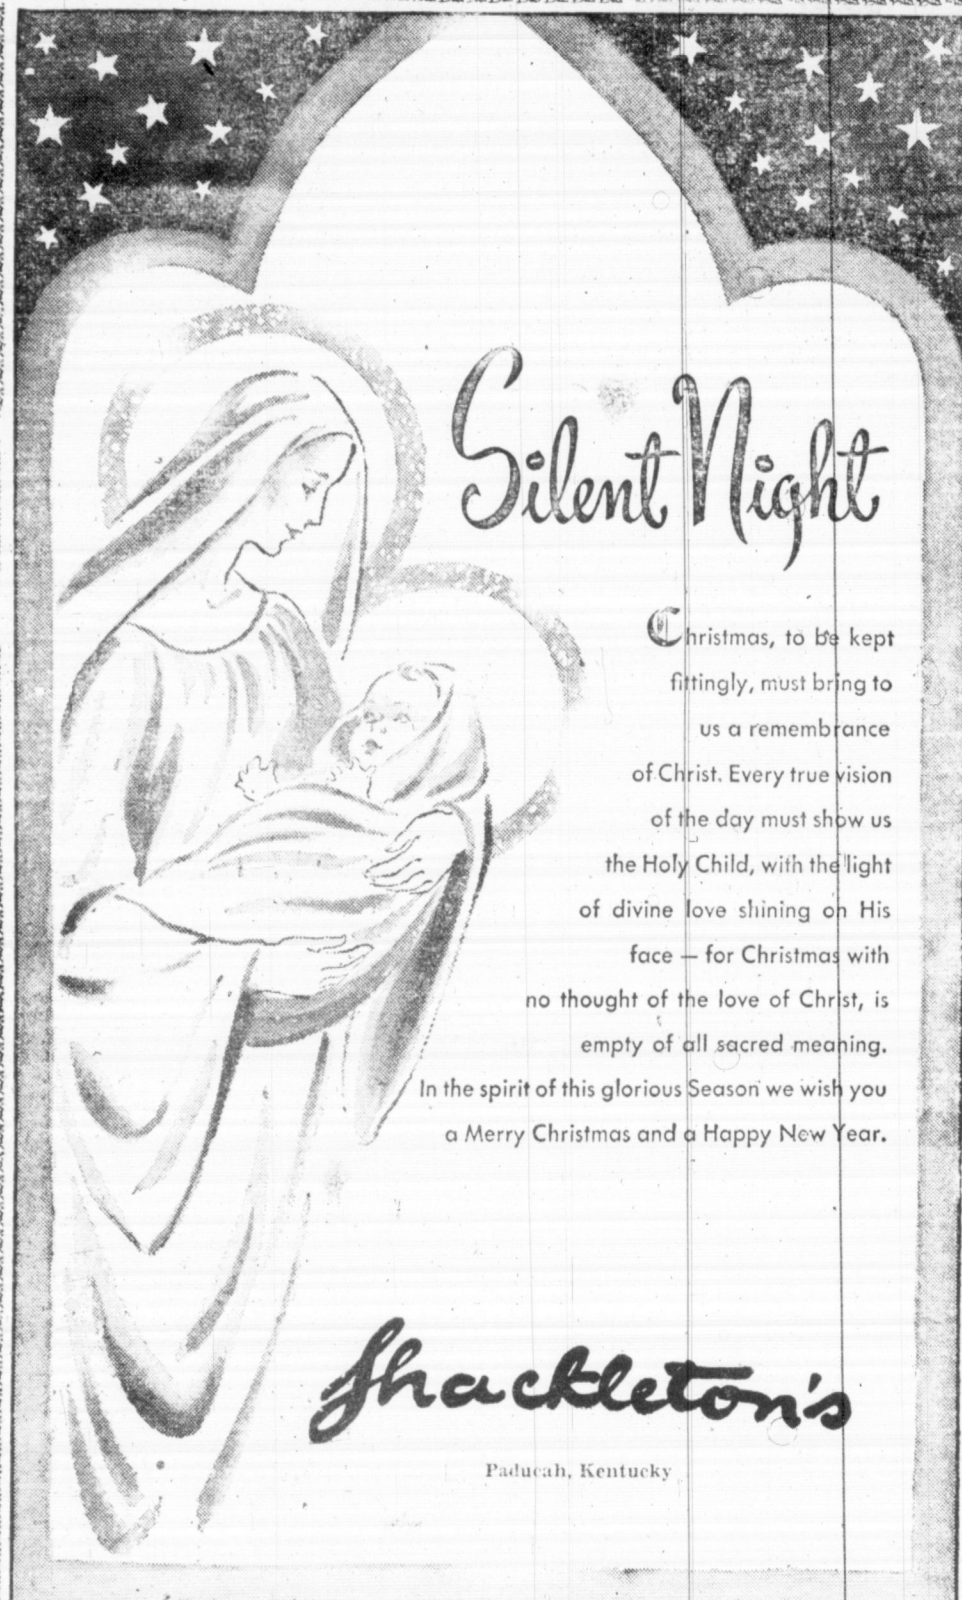 Silent Night
Christmas, to be kept
fittingly, must bring to
us a remembrance
of Christ. Every true vision
of the day must show us
the Holy Child, with the light
of divine love shining on His
face — for Christmas with
no thought of the love of Christ, is
empty of all sacred meaning.
In the spirit of this glorious Season we wish you
a Merry Christmas and a Happy New Year.
Shackleton's
Paducah, Kentucky